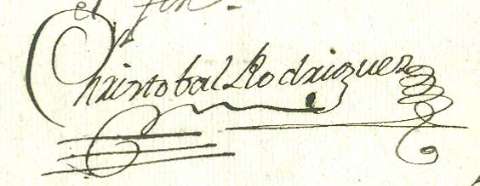 el fin.
Christobal Rodriguez